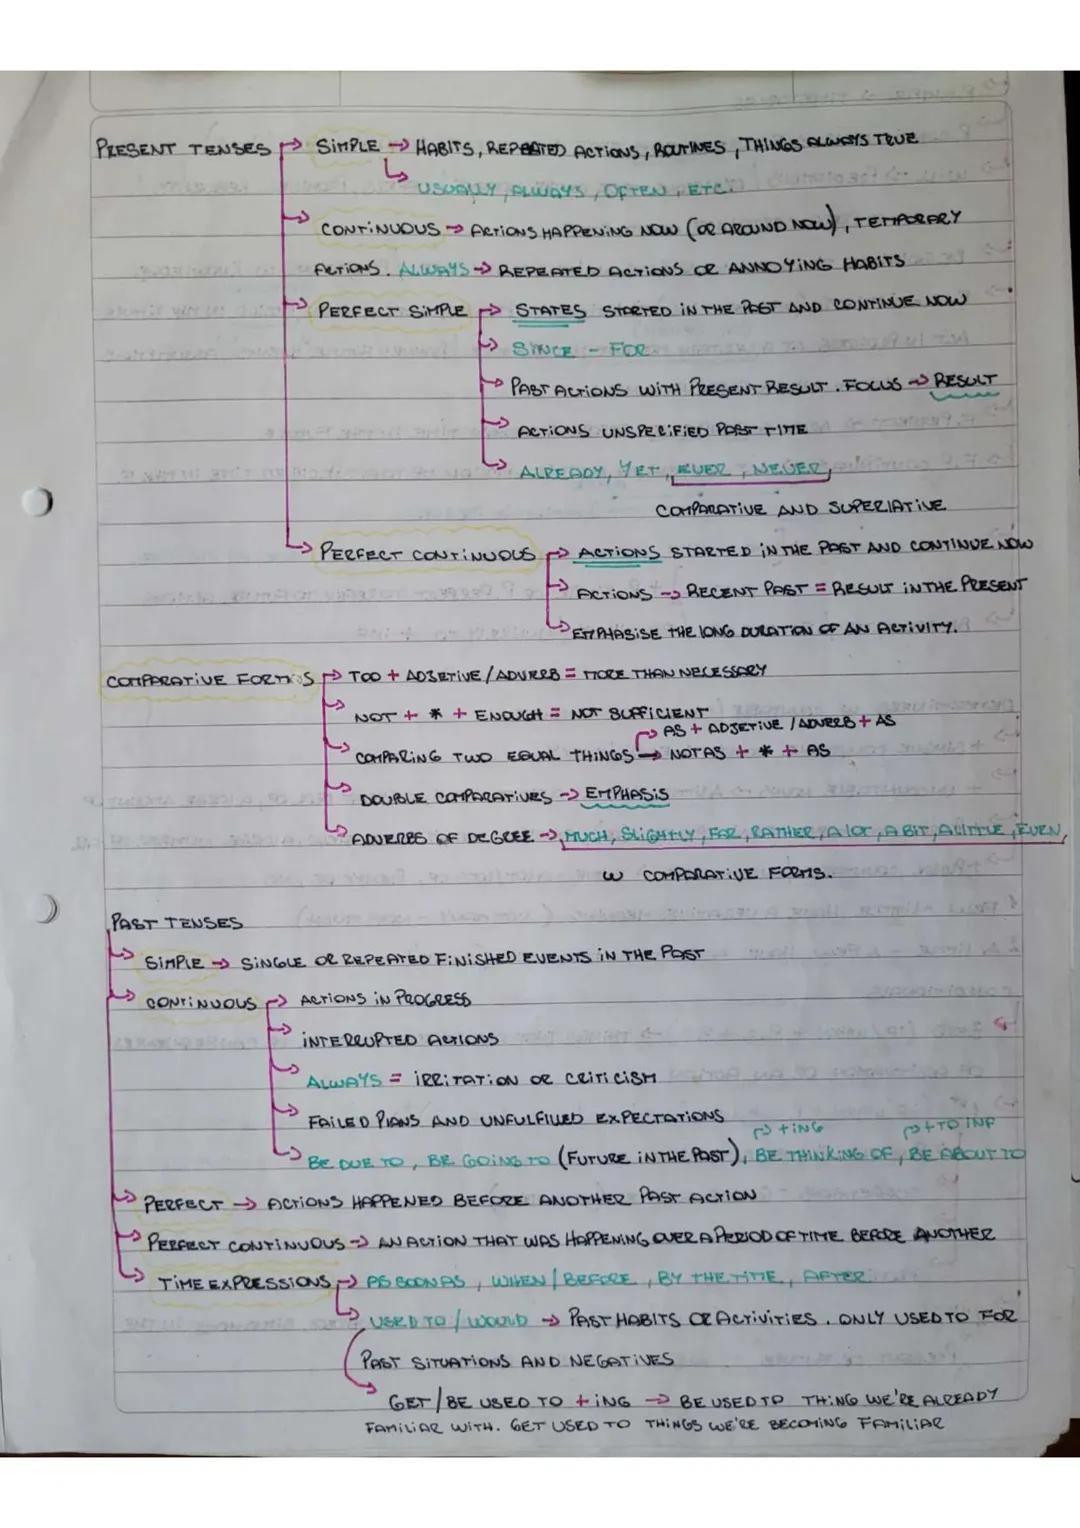 PRESENT TENSES → SIMPLE → HABITS, REPEATED ACTIONS, ROUTINES, THINGS ALWAYS TRUE
↳ USUALLY, ALWAYS, OFTEN, ETC.
→ CONTINUOUS → ACTIONS HAPPENING NOW (OR AROUND NOW), TEMPORARY
ACTIONS. ALWAYS → REPEATED ACTIONS OR ANNOYING HABITS
→ PERFECT SIMPLE → STATES STARTED IN THE PAST AND CONTINUE NOW
→ SINCE - FOR
→ PAST ACTIONS WITH PRESENT RESULT. FOCUS → RESULT
→ ACTIONS UNSPECIFIED PAST TIME
→ ALREADY, YET, EVER, NEVER,
COMPARATIVE AND SUPERLATIVE
→ PERFECT CONTINUOUS → ACTIONS STARTED IN THE PAST AND CONTINUE NOW
→ ACTIONS → RECENT PAST = RESULT IN THE PRESENT
→ EMPHASISE THE LONG DURATION OF AN ACTIVITY.
COMPARATIVE FORMS → TOO + ADJETIVE/ADVERB = MORE THAN NECESSARY
→ NOT + * + ENOUGH = NOT SUFFICIENT
→ AS + ADJETIVE /ADVERB + AS
→ COMPARING TWO EQUAL THINGS → NOT AS + * + AS
→ DOUBLE COMPARATIVES → EMPHASIS
→ ADVERBS OF DEGREE → MUCH, SLIGHTLY, FAR, RATHER, A LOT, A BIT, A LITTLE, EVEN,
W COMPARATIVE FORMS.
PAST TENSES
→ SIMPLE → SINGLE OR REPEATED FINISHED EVENTS IN THE PAST
→ CONTINUOUS → ACTIONS IN PROGRESS
→ INTERRUPTED ACTIONS
→ ALWAYS = IRRITATION OR CRITICISM
→ FAILED PLANS AND UNFULFILLED EXPECTATIONS
→ +ING → +TO INF
→ BE DUE TO, BE GOING TO (FUTURE IN THE PAST), BE THINKING OF, BE ABOUT TO
→ PERFECT → ACTIONS HAPPENED BEFORE ANOTHER PAST ACTION
→ PERFECT CONTINUOUS → AN ACTION THAT WAS HAPPENING OVER A PERIOD OF TIME BEFORE ANOTHER
→ TIME EXPRESSIONS → AS SOON AS, WHEN/BEFORE, BY THE TIME, AFTER
→ USED TO / WOULD → PAST HABITS OR ACTIVITIES. ONLY USED TO FOR
PAST SITUATIONS AND NEGATIVES
→ GET/BE USED TO +ING → BE USED TO THING WE'RE ALREADY
FAMILIAR WITH. GET USED TO THINGS WE'RE BECOMING FAMILIAR